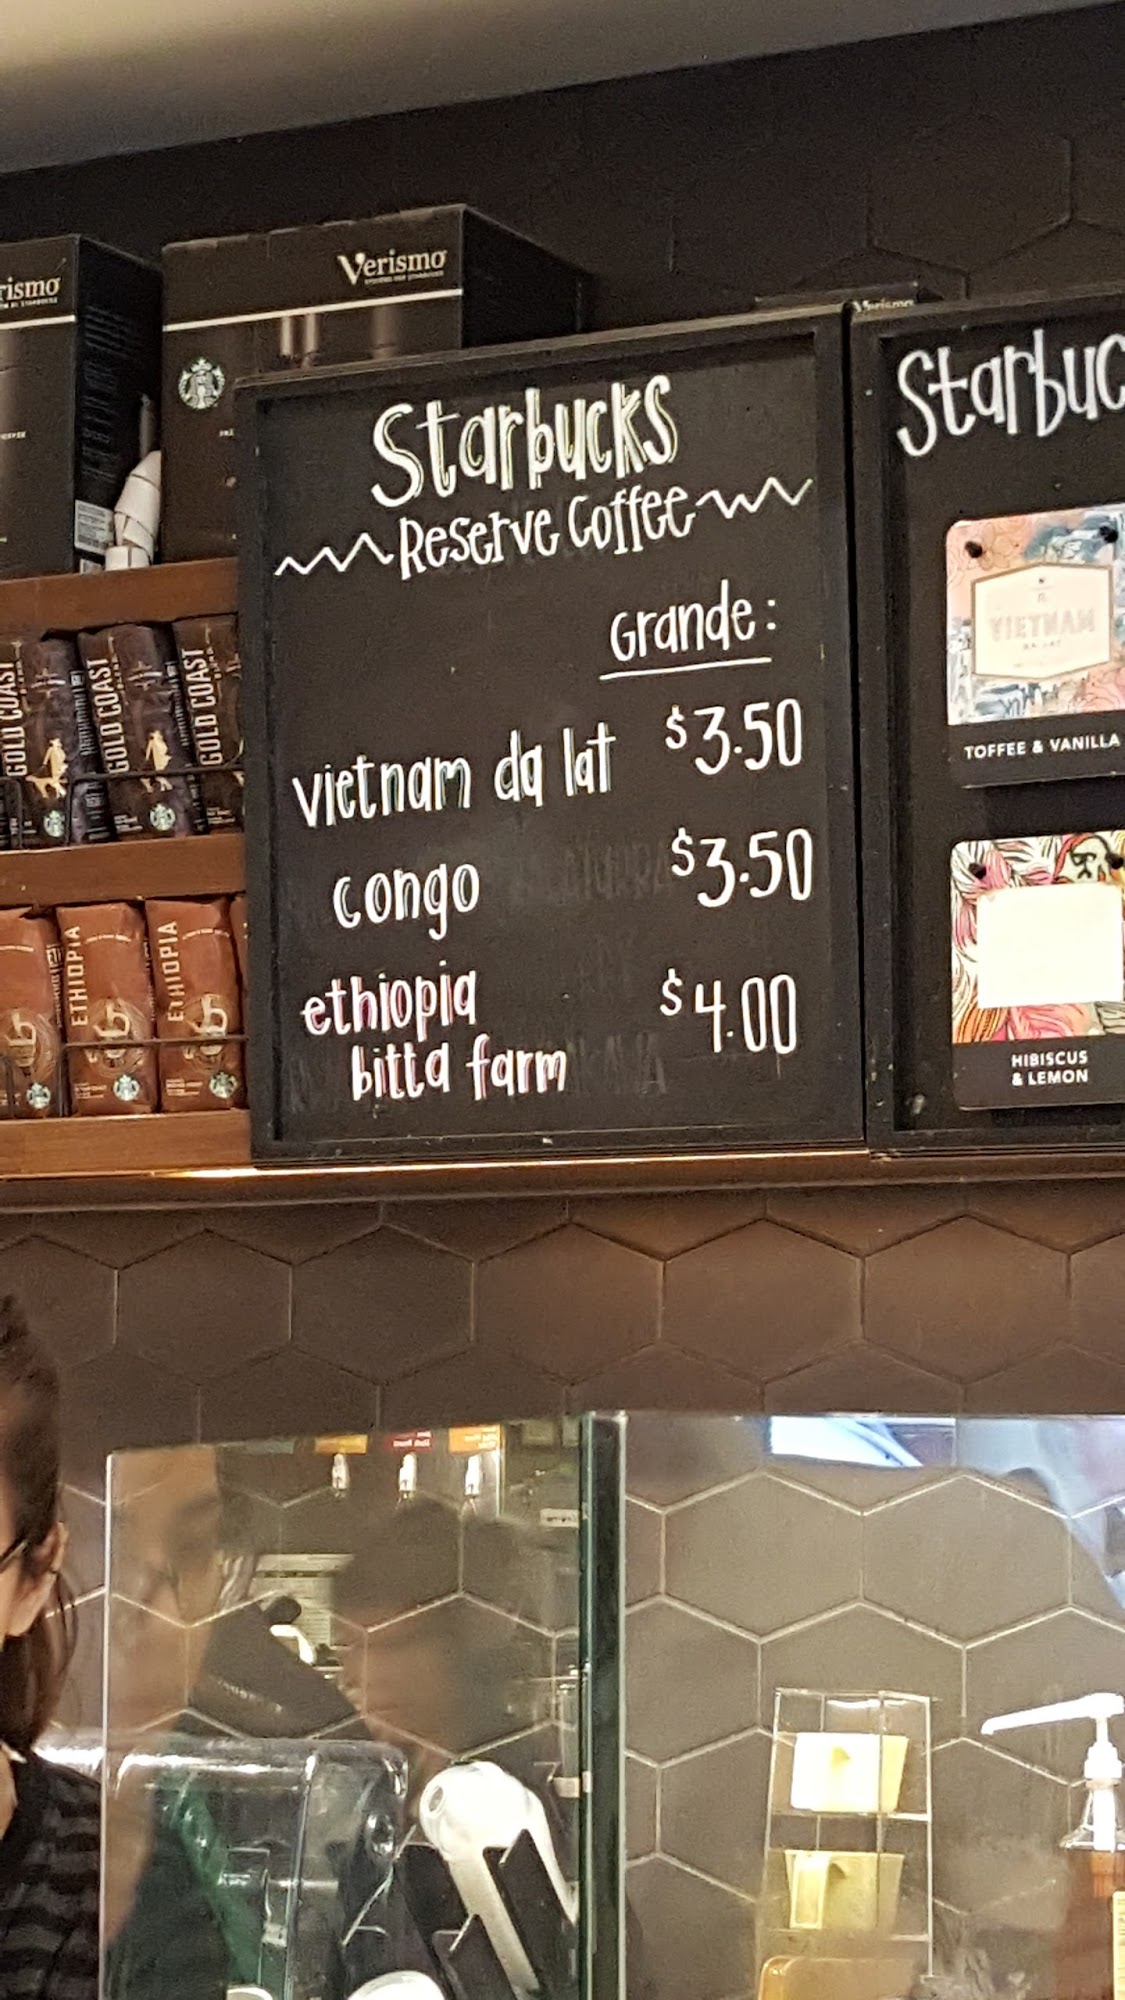 Verismo
rismo
Verismo
Starbucks
Reserve Coffee
Grande:
vietnam da lat $3.50
congo $3.50
ethiopia $4.00
bitta farm
Starbuc
VIETNAM
DA LAT
TOFFEE & VANILLA
HIBISCUS
& LEMON
GOLD COAST
GOLD COAST
GOLD COAST
ETHIOPIA
ETHIOPIA